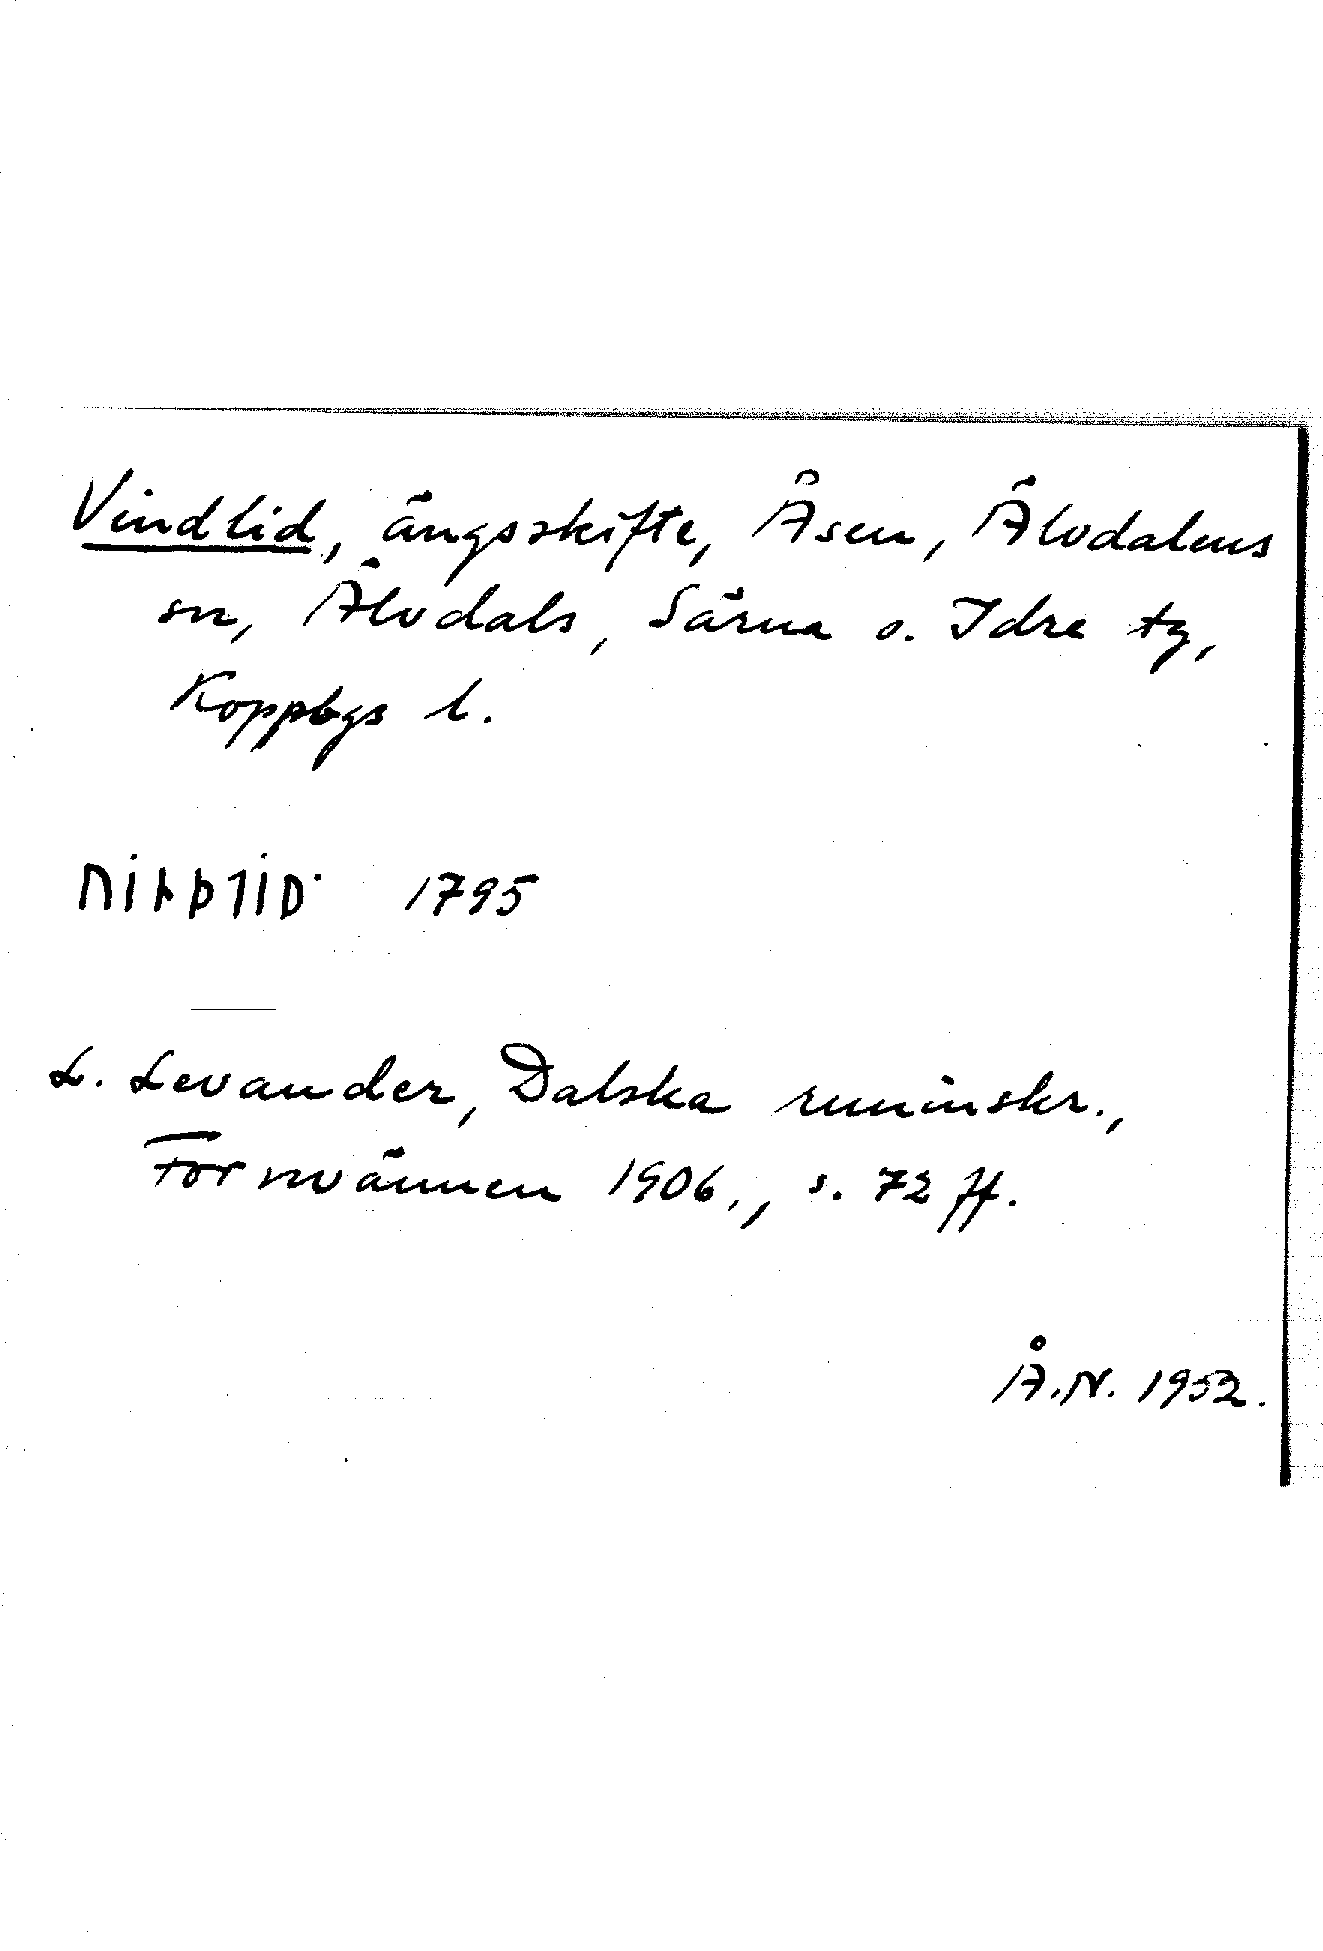 Vindlid, ängsskifte, Åsen, Älvdalens
sn, Älvdals, Särna o. Idre tg,
Koppbgs l.
ᚢᛁᚿᚦᛚᛁD· 1795
L. Levander, Dalska runinskr.,
Fornvännen 1906., s. 72 ff.
Å.N. 1952.